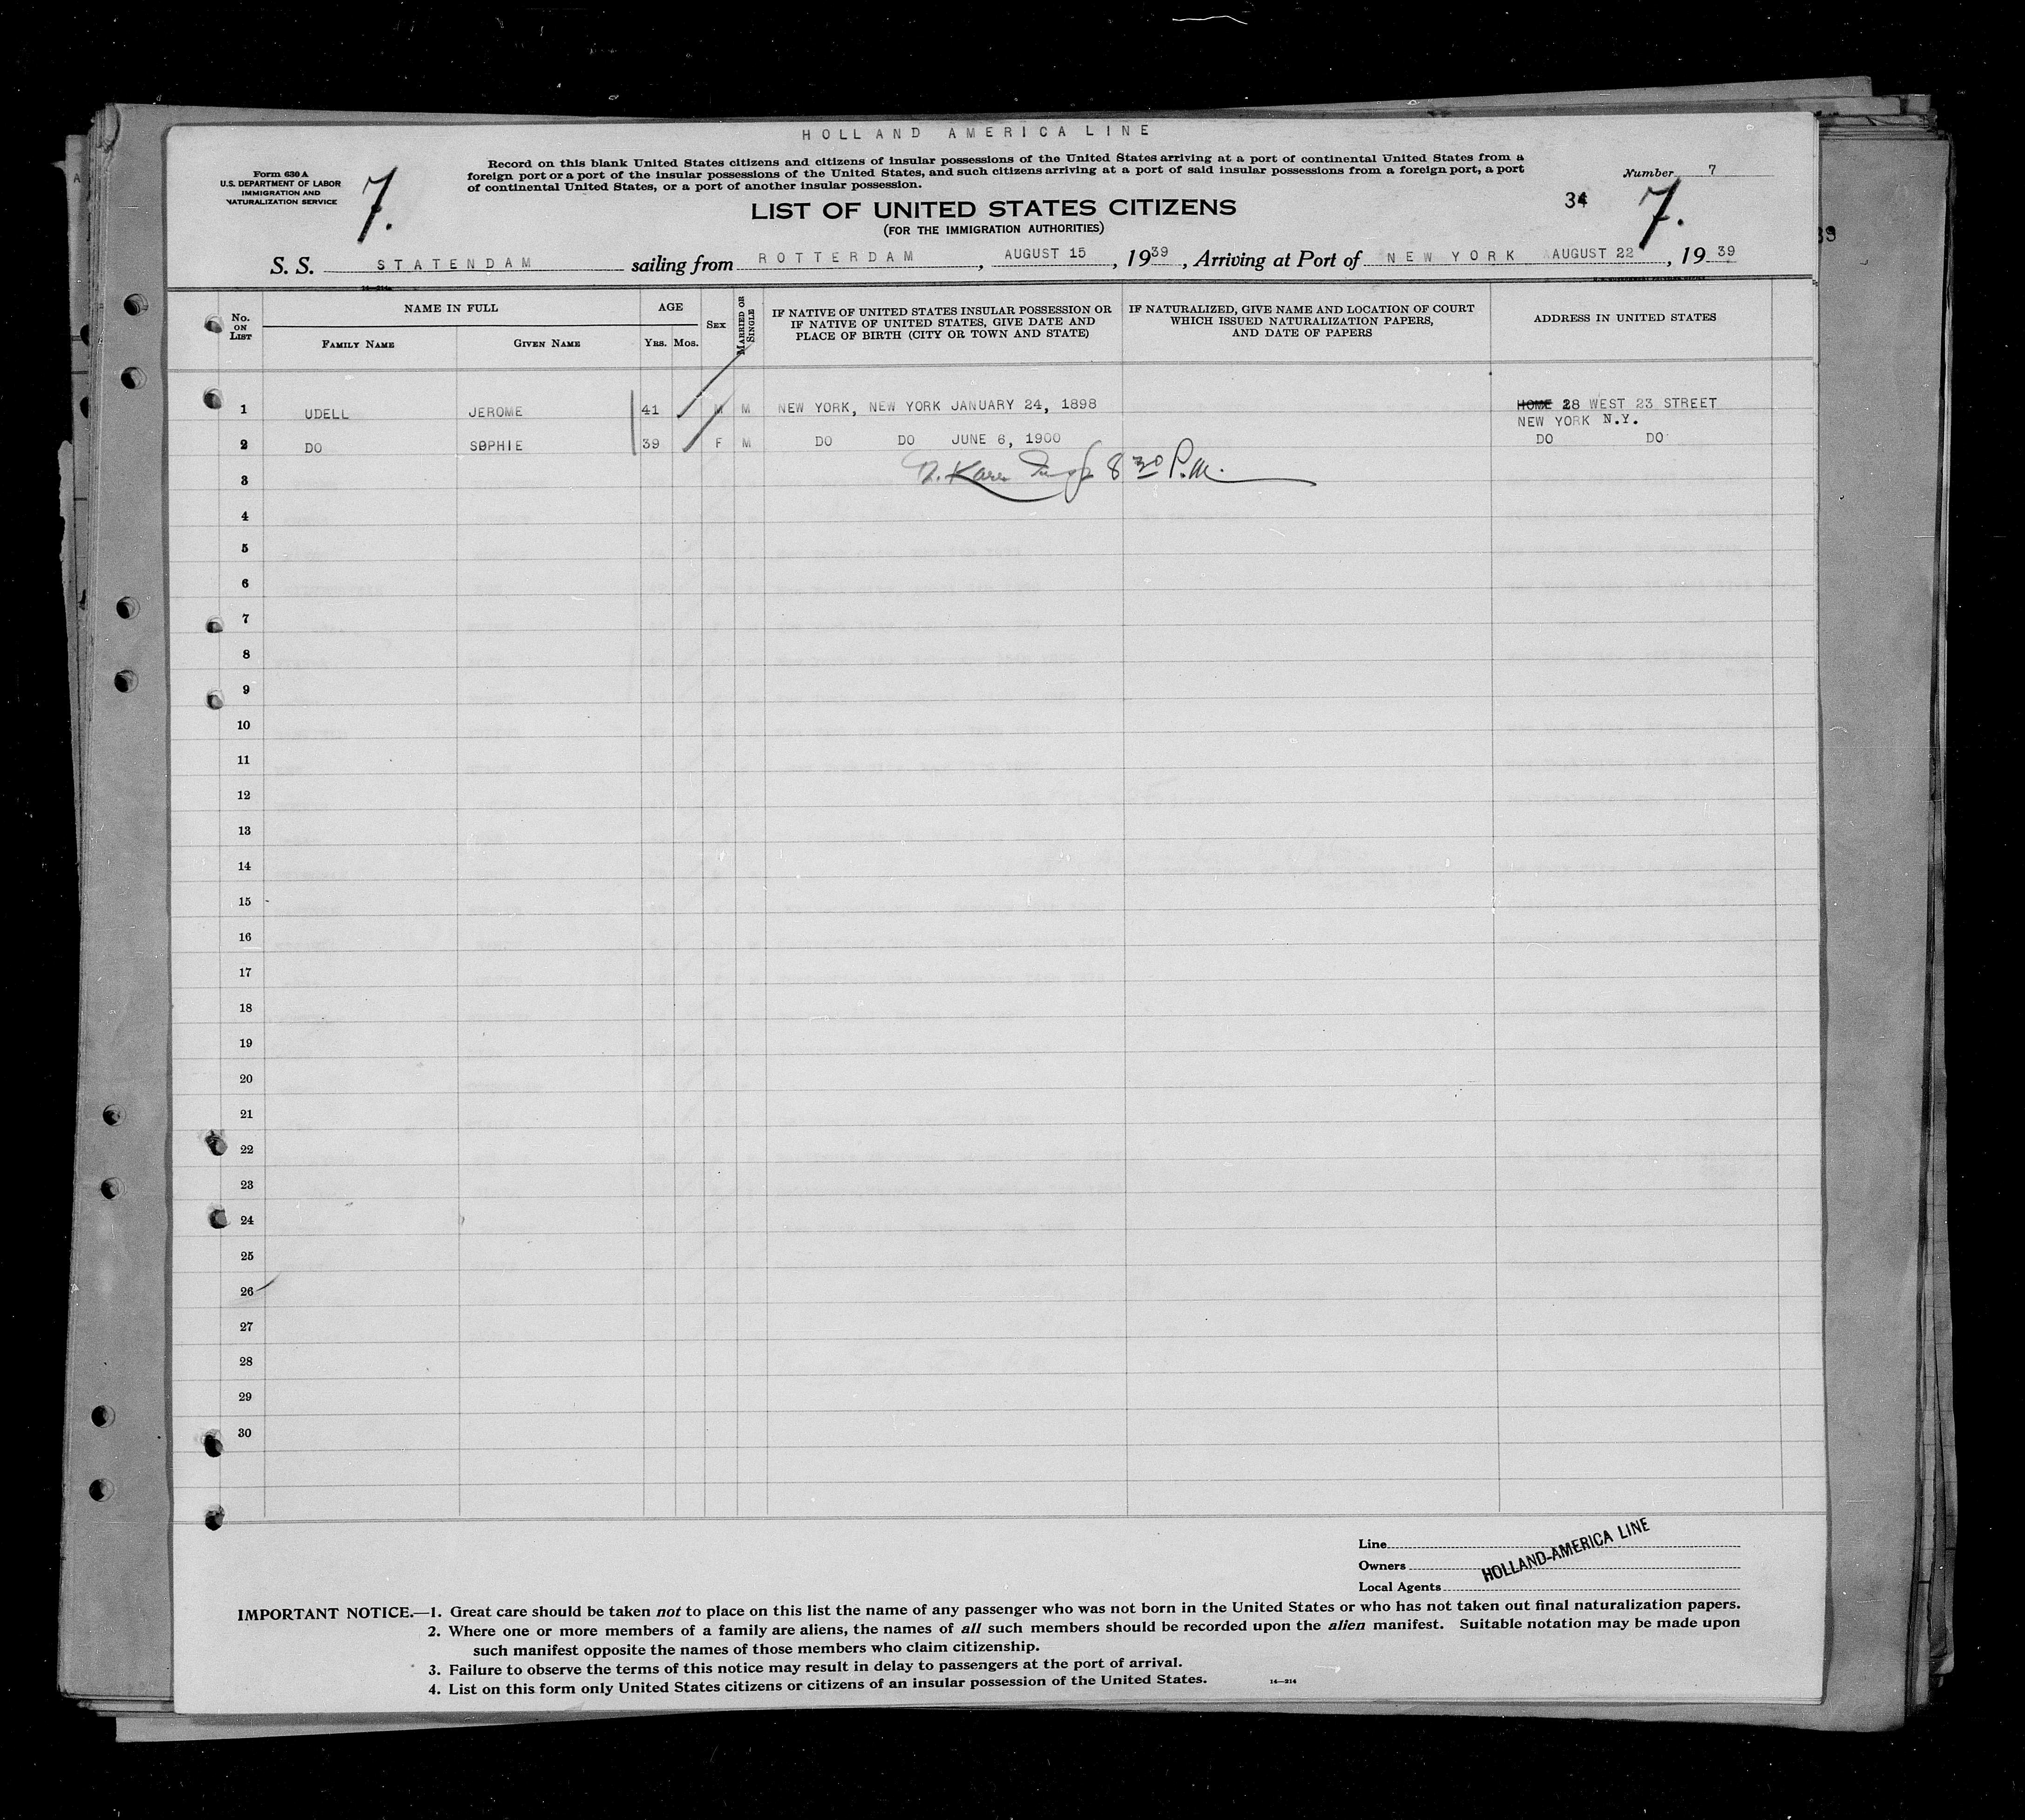 HOLLAND AMERICA LINE
Form 630 A
U.S. DEPARTMENT OF LABOR
IMMIGRATION AND
NATURALIZATION SERVICE
7.
Record on this blank United States citizens and citizens of insular possessions of the United States arriving at a port of continental United States from a
foreign port or a port of the insular possessions of the United States, and such citizens arriving at a port of said insular possessions from a foreign port, a port
of continental United States, or a port of another insular possession.
Number 7
34 7.
LIST OF UNITED STATES CITIZENS
(FOR THE IMMIGRATION AUTHORITIES)
S. S. STATENDAM sailing from ROTTERDAM, AUGUST 15, 1939, Arriving at Port of NEW YORK AUGUST 22, 1939
14—214
No. ON LIST
NAME IN FULL
FAMILY NAME GIVEN NAME
AGE
YRS. MOS.
SEX
MARRIED OR SINGLE
IF NATIVE OF UNITED STATES INSULAR POSSESSION OR
IF NATIVE OF UNITED STATES, GIVE DATE AND
PLACE OF BIRTH (CITY OR TOWN AND STATE)
IF NATURALIZED, GIVE NAME AND LOCATION OF COURT
WHICH ISSUED NATURALIZATION PAPERS,
AND DATE OF PAPERS
ADDRESS IN UNITED STATES
1 UDELL JEROME 41 M M NEW YORK, NEW YORK JANUARY 24, 1898 HOME 28 WEST 23 STREET
NEW YORK N.Y.
2 DO SOPHIE 39 F M DO DO JUNE 6, 1900 DO DO
3 8 30 P.M.
4
5
6
7
8
9
10
11
12
13
14
15
16
17
18
19
20
21
22
23
24
25
26
27
28
29
30
Line
Owners
Local Agents
HOLLAND-AMERICA LINE
IMPORTANT NOTICE.—1. Great care should be taken not to place on this list the name of any passenger who was not born in the United States or who has not taken out final naturalization papers.
2. Where one or more members of a family are aliens, the names of all such members should be recorded upon the alien manifest. Suitable notation may be made upon
such manifest opposite the names of those members who claim citizenship.
3. Failure to observe the terms of this notice may result in delay to passengers at the port of arrival.
4. List on this form only United States citizens or citizens of an insular possession of the United States.
14—214